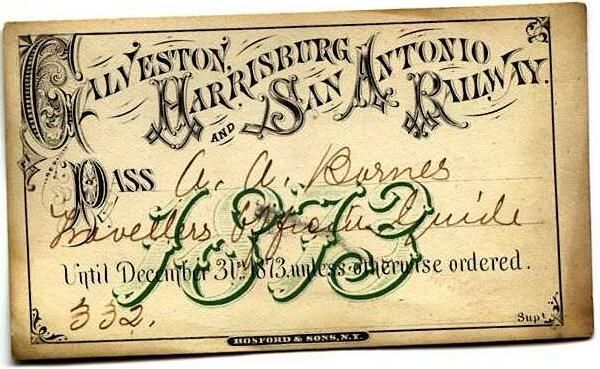 GALVESTON, HARRISBURG AND SAN ANTONIO RAILWAY.
PASS A. A. Barnes
Travellers Official Guide
1873
Until December 31st, 1873, unless otherwise ordered.
332.
Supt.
HOSFORD & SONS, N.Y.